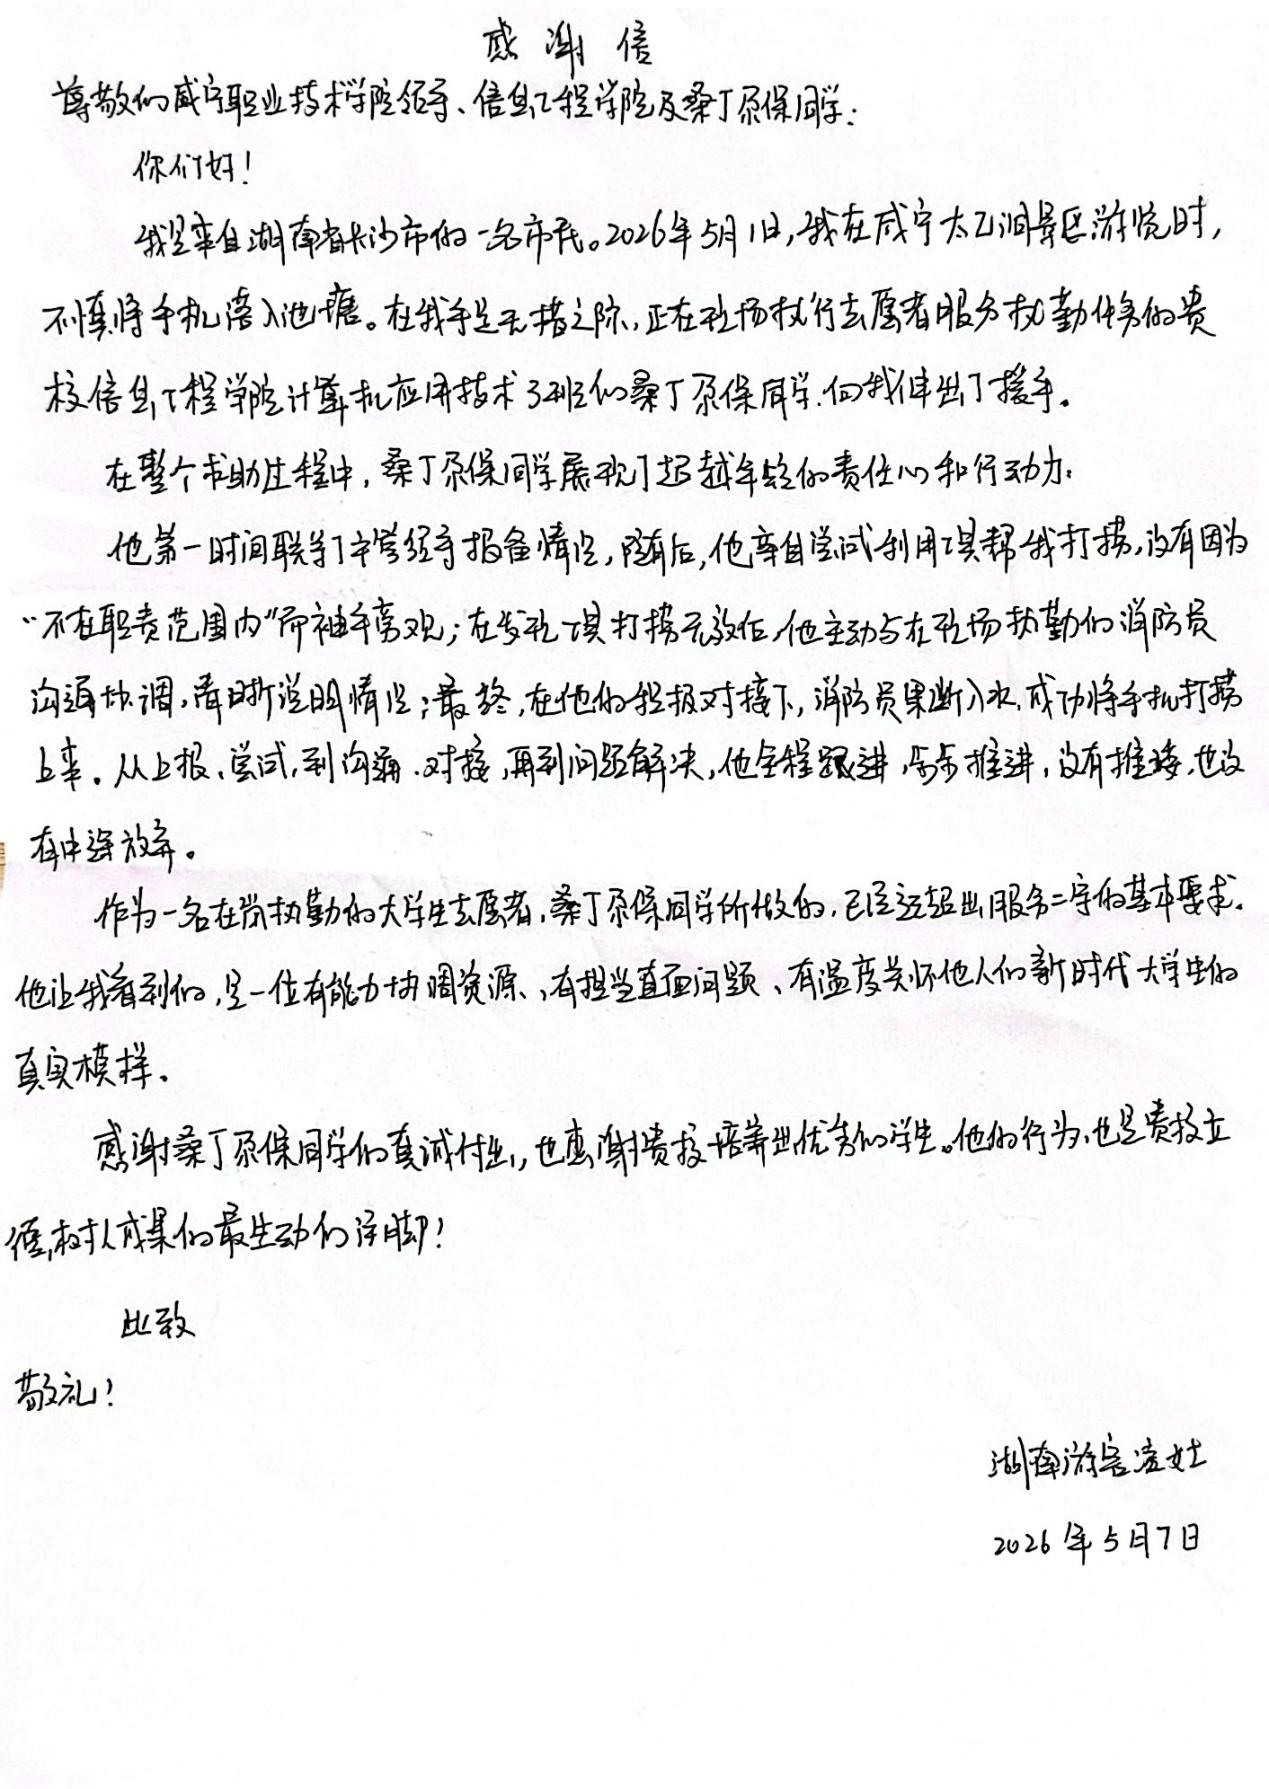 感谢信
尊敬的咸宁职业技术学院领导、信息工程学院及桑丁尕保同学:
你们好!
我是来自湖南省长沙市的一名市民。2026年5月1日,我在咸宁太乙洞景区游览时,
不慎将手机落入池塘。在我手足无措之际,正在现场执行志愿者服务执勤任务的贵
校信息工程学院计算机应用技术3班的桑丁尕保同学,向我伸出了援手。
在整个求助过程中,桑丁尕保同学展现了超越年龄的责任心和行动力:
他第一时间联系了主管经理报备情况,随后,他亲自尝试利用工具帮我打捞,没有因为
“不在职责范围内”而袖手旁观;在发现工具打捞无效后,他主动与在现场执勤的消防员
沟通协调,清晰说明情况;最终,在他的积极对接下,消防员果断入水,成功将手机打捞
上来。从上报、尝试,到沟通、对接,再到问题解决,他全程跟进,步步推进,没有推诿,也没
有中途放弃。
作为一名在岗执勤的大学生志愿者,桑丁尕保同学所做的,已经远超出服务二字的基本要求。
他让我看到的,是一位有能力协调资源、有担当直面问题、有温度关怀他人的新时代大学生的
真实模样。
感谢桑丁尕保同学的真诚付出,也感谢贵校培养出优秀的学生。他的行为,也是贵校立
德树人成果的最生动的注脚!
此致
敬礼!
湖南游客凌女士
2026年5月7日